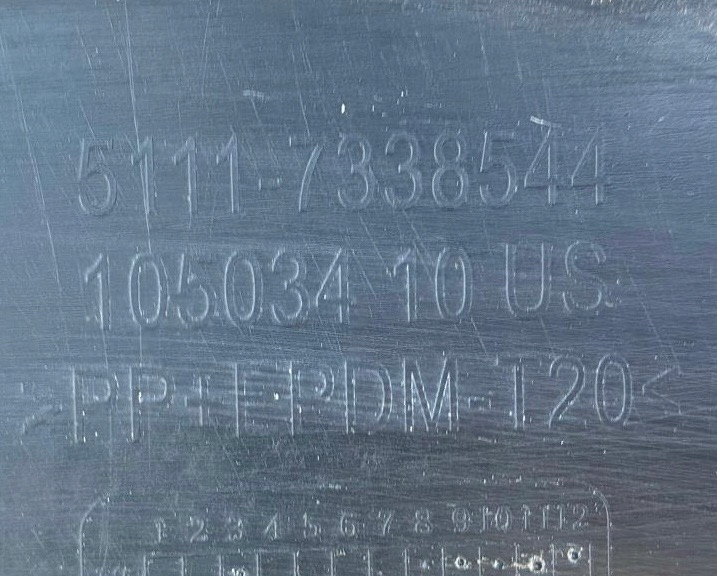 5111-7338544
105034 10 US
>PP+EPDM-T20<
1 2 3 4 5 6 7 8 9 10 11 12